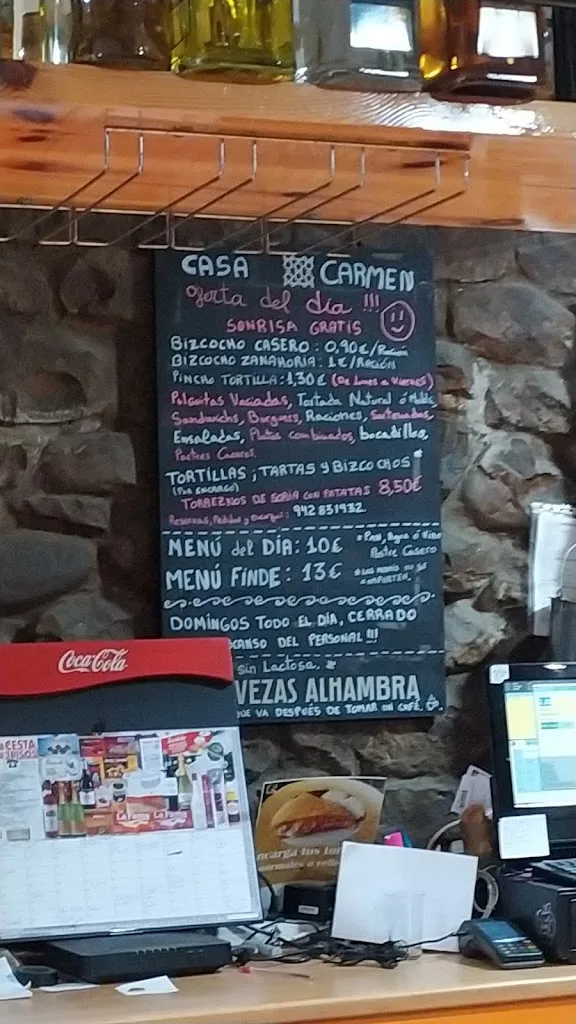 CASA CARMEN
Oferta del día !!!
SONRISA GRATIS
BIZCOCHO CASERO: 0,90€/Ración
BIZCOCHO ZANAHORIA: 1€/RACIÓN
PINCHO TORTILLA: 1,30€ (De Lunes a Viernes)
Pulguitas Variadas, Tostada Natural ó
Sandwichs, Burguers, Raciones,
Ensaladas, Platos combinados, bocadillos,
Postres Caseros.
TORTILLAS, TARTAS Y BIZCOCHOS
(POR ENCARGO)
TORREZNOS DE SORIA CON PATATAS 8,50€
Reservas, Pedidos y encargos: 942 831932
MENÚ del DÍA: 10€ * Pan, Agua ó Vino
Postre Casero
MENÚ FINDE: 13€ * LOS MENÚS NO SE
COMPARTEN.
DOMINGOS TODO EL DÍA, CERRADO
CANSO DEL PERSONAL!!!
sin Lactosa.
VEZAS ALHAMBRA
QUE VA DESPUÉS DE TOMAR UN CAFÉ.
Coca-Cola
CESTA
ncarga tus tor
normales o relle